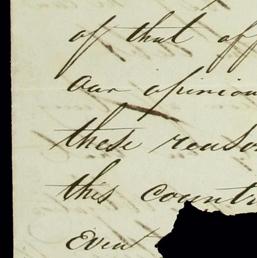 of that off
our opinion
these reaso
this countr
Even